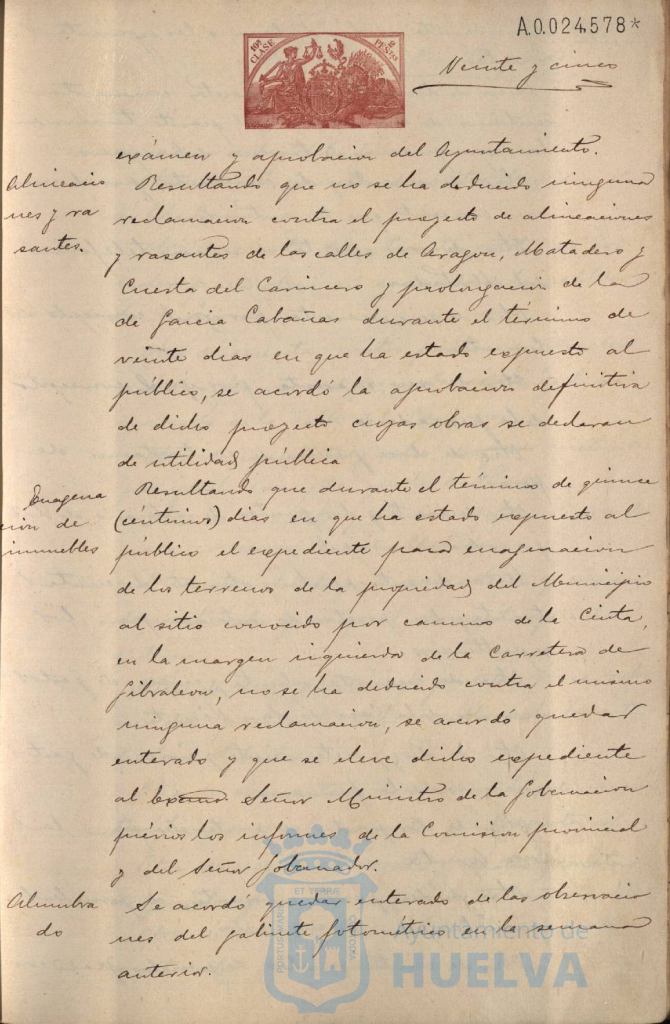 A.0.024,578*
10ª CLASE
2 PESETAS
Veinte y cinco
exámen y aprobacion del Ayuntamiento.
Alineacio
nes y ra
santes.
Resultando que no se ha deducido ninguna
reclamacion contra el proyecto de alineaciones
y rasantes de las calles de Aragon, Matadero y
Cuesta del Carnicero y prolongacion de la
de Garcia Cabañas durante el término de
veinte dias en que ha estado expuesto al
público, se acordó la aprobacion definitiva
de dicho proyecto cuyas obras se declaran
de utilidad pública
Enagena
cion de
inmuebles
Resultando que durante el término de quince
(céntimos) dias en que ha estado expuesto al
público el expediente para enagenacion
de los terrenos de la propiedad del Municipio
al sitio conocido por camino de la Cinta,
en la margen izquierda de la Carretera de
Gibraleon, no se ha deducido contra el mismo
ninguna reclamacion, se acordó quedar
enterado y que se eleve dicho expediente
al Excmo. Señor Ministro de la Gobernacion
prévios los informes de la Comision provincial
y del Señor Gobernador.
Alumbra
do
Se acordó quedar enterado de las observacio
nes del gabinete fotométrico en la semana
anterior.
PORTUS MARIS ET TERRÆ CUSTODIA
Ayuntamiento de
HUELVA